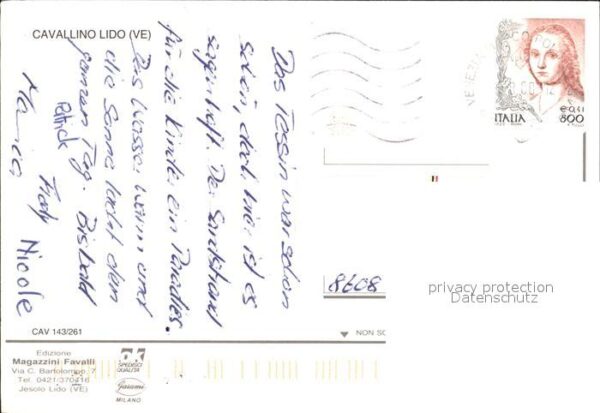 CAVALLINO LIDO (VE)
Das Tessin war schon
schön, doch hier ist es
sagenhaft. Der Sandstrand
für die Kinder ein Paradies.
Das Wasser warm und
die Sonne lacht den
ganzen Tag. Bis bald
Patrick
Fredy Nicole
CAV 143/261
Edizione
Magazzini Favalli
Via C. Bartolomeo, 7
Tel. 0421/370416
Jesolo Lido (VE)
SPEDISCI
QUALITÀ
MILANO
VENEZIA
€ 0,41
ITALIA 800
8608
privacy protection
Datenschutz
NON SC